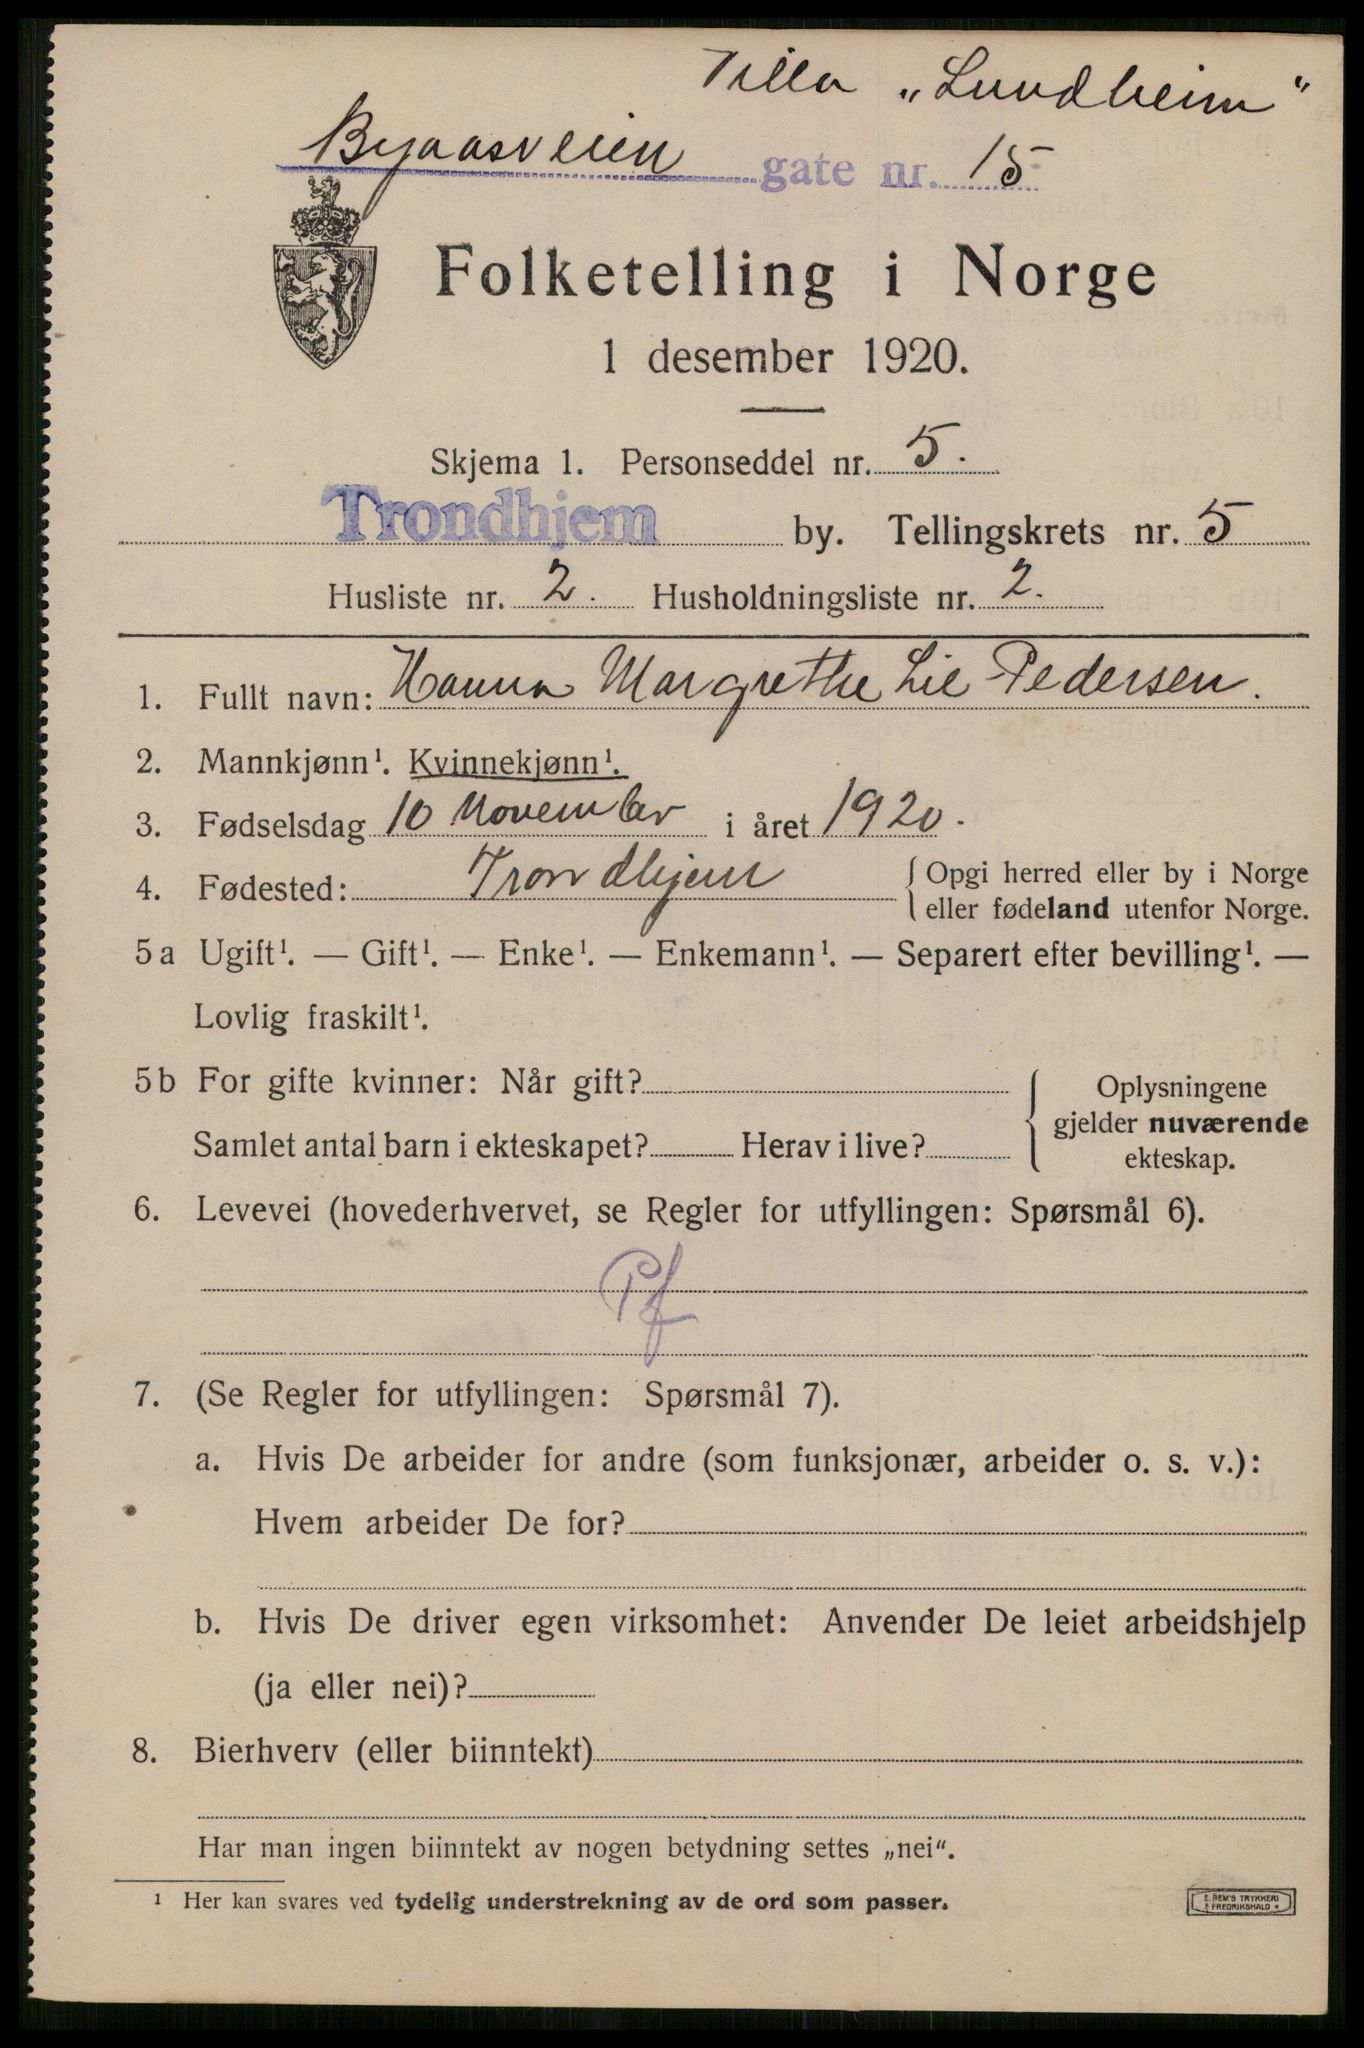 Villa „Lundheim“
Byaasveien gate nr. 15
Folketelling i Norge
1 desember 1920.
Skjema 1. Personseddel nr. 5.
Trondhjem by. Tellingskrets nr. 5
Husliste nr. 2. Husholdningsliste nr. 2.
1. Fullt navn: Hanna Margrethe Lie Pedersen.
2. Mannkjønn¹. Kvinnekjønn¹.
3. Fødselsdag 10 November i året 1920.
4. Fødested: Trondhjem { Opgi herred eller by i Norge
eller fødeland utenfor Norge.
5a Ugift¹. — Gift¹. — Enke¹. — Enkemann¹. — Separert efter bevilling¹. —
Lovlig fraskilt¹.
5b For gifte kvinner: Når gift? { Oplysningene
gjelder nuværende
Samlet antal barn i ekteskapet? Herav i live? ekteskap.
6. Levevei (hovederhvervet, se Regler for utfyllingen: Spørsmål 6).
Pf
7. (Se Regler for utfyllingen: Spørsmål 7).
a. Hvis De arbeider for andre (som funksjonær, arbeider o. s. v.):
Hvem arbeider De for?
b. Hvis De driver egen virksomhet: Anvender De leiet arbeidshjelp
(ja eller nei)?
8. Bierhverv (eller biinntekt)
Har man ingen biinntekt av nogen betydning settes „nei“.
¹ Her kan svares ved tydelig understrekning av de ord som passer.
E. SEM'S TRYKKERI
FREDRIKSHALD